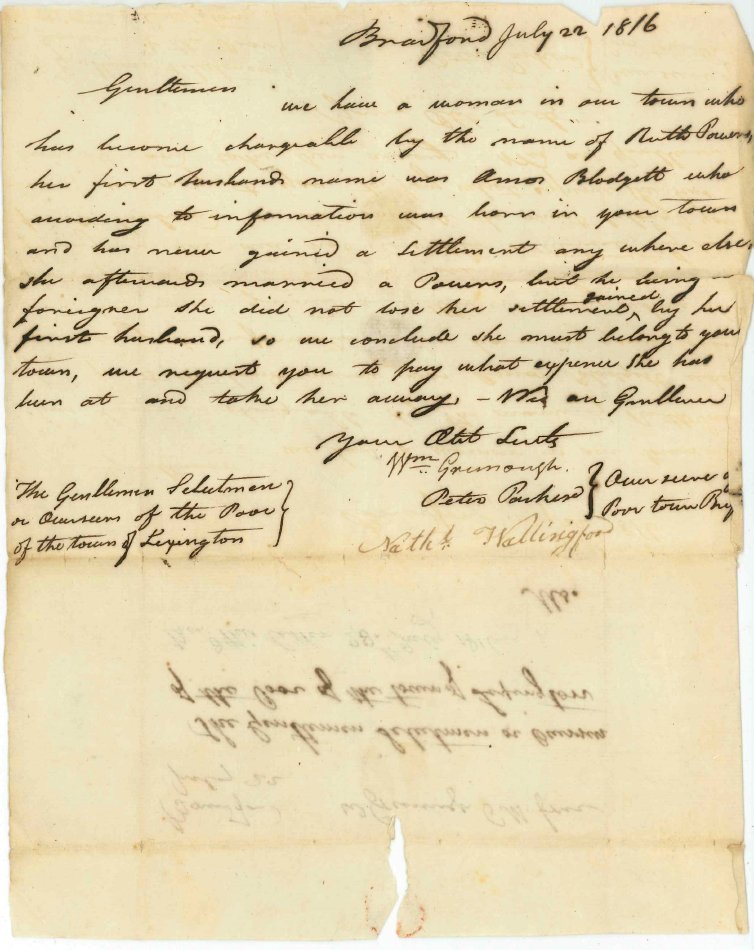 Bradford July 22 1816
Gentlemen we have a woman in our town who
has become chargeable by the name of Ruth Powers,
her first husbands name was Amos Blodgett who
according to information was born in your town
and has never gained a settlement any where else,
she afterwards married a Powers, but he being
foreigner she did not lose her settlement gained by her
first husband, so we conclude she must belong to your
town, we request you to pay what expence she has
been at and take her away, – We are Gentlemen
Your Obt Servts
Wm. Greenough.
Peter Parker
Overseers
Poor town
Nathl. Wallingford
The Gentlemen Selectmen
or Overseers of the Poor
of the town of Lexington
Ms.
of the Poor of the town of Lexington
The Gentlemen Selectmen or Overseers
July 22
Bradford